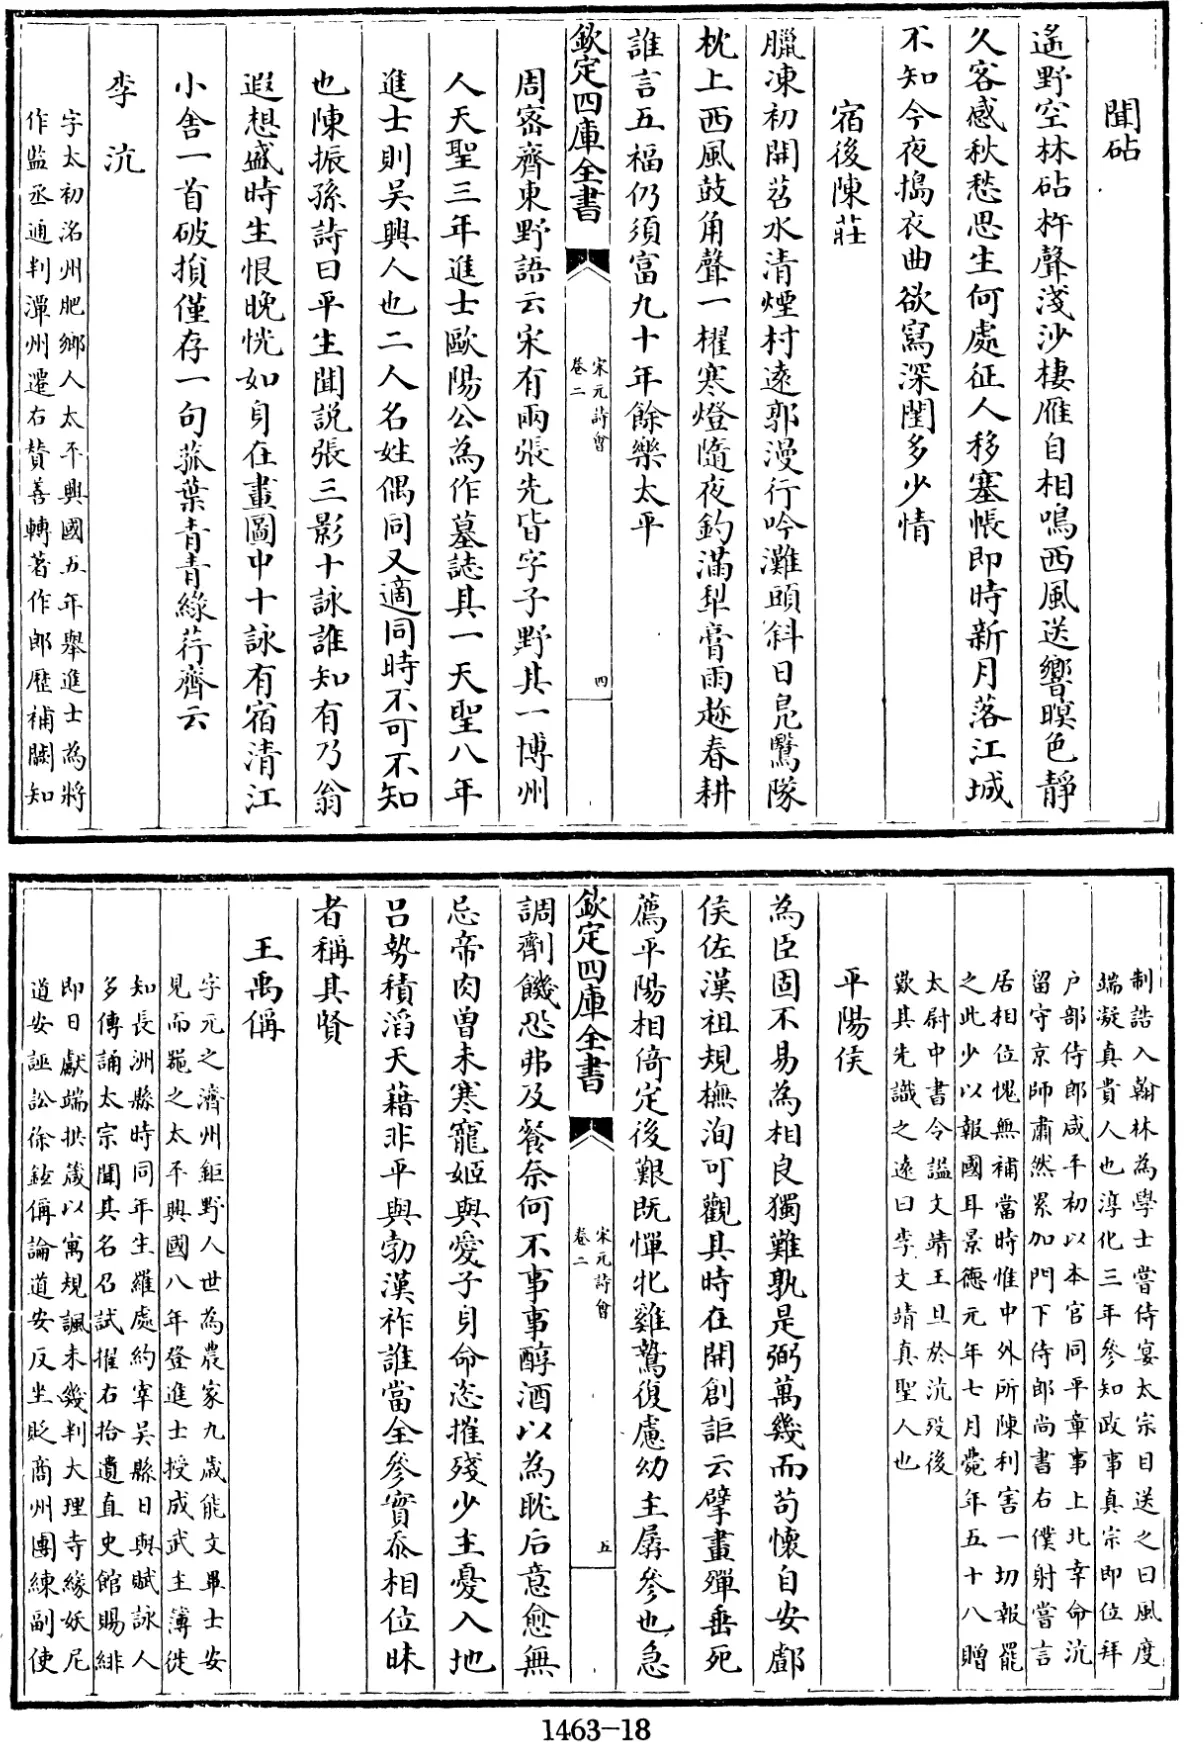 聞砧
遙野空林砧杵聲淺沙棲雁自相鳴西風送響暝色靜
久客感秋愁思生何處征人移塞帳即時新月落江城
不知今夜搗衣曲欲寫深閨多少情
宿後陳莊
臘凍初開苕水清煙村遠郭漫行吟灘頭斜日鳧鷖隊
枕上西風鼓角聲一櫂寒燈隨夜釣滿犁膏雨趂春耕
誰言五福仍須富九十年餘樂太平
欽定四庫全書
宋元詩會
卷二
四
周密齊東野語云宋有兩張先皆字子野其一博州
人天聖三年進士歐陽公為作墓誌其一天聖八年
進士則吴興人也二人名姓偶同又適同時不可不知
也陳振孫詩曰平生聞説張三影十詠誰知有乃翁
遐想盛時生恨晚恍如身在畫圖中十詠有宿清江
小舎一首破損僅存一句菰葉青青緑荇齊云
李沆
字太初洺州肥鄉人太平興國五年舉進士為將
作監丞通判潭州遷右賛善轉著作郎歴補闕知
制誥入翰林為學士嘗侍宴太宗目送之曰風度
端凝真貴人也淳化三年參知政事真宗即位拜
户部侍郎咸平初以本官同平章事上北幸命沆
留守京師肅然累加門下侍郎尚書右僕射嘗言
居相位愧無補當時惟中外所陳利害一切報罷
之此少以報國耳景德元年七月薨年五十八贈
太尉中書令諡文靖王旦於沆殁後
歎其先識之遠曰李文靖真聖人也
平陽侯
為臣固不易為相良獨難孰是弼萬幾而茍懷自安酇
侯佐漢祖規橅洵可觀其時在開創詎云擘畫殫垂死
薦平陽相倚定後艱既憚牝雞鷙復慮幼主孱參也急
欽定四庫全書
宋元詩會
卷二
五
調劑饑恐弗及餐奈何不事事醇酒以為耽后意愈無
忌帝肉曾未寒寵姬與愛子身命恣摧殘少主憂入地
吕勢積滔天藉非平與勃漢祚誰當全參實忝相位昧
者稱其賢
王禹偁
字元之濟州鉅野人世為農家九歳能文畢士安
見而器之太平興國八年登進士授成武主簿徙
知長洲縣時同年生羅處約宰吴縣日與賦詠人
多傳誦太宗聞其名召試擢右拾遺直史館賜緋
即日獻端拱箴以寓規諷未幾判大理寺緣妖尼
道安誣訟徐鉉偁論道安反坐貶商州團練副使
1463-18